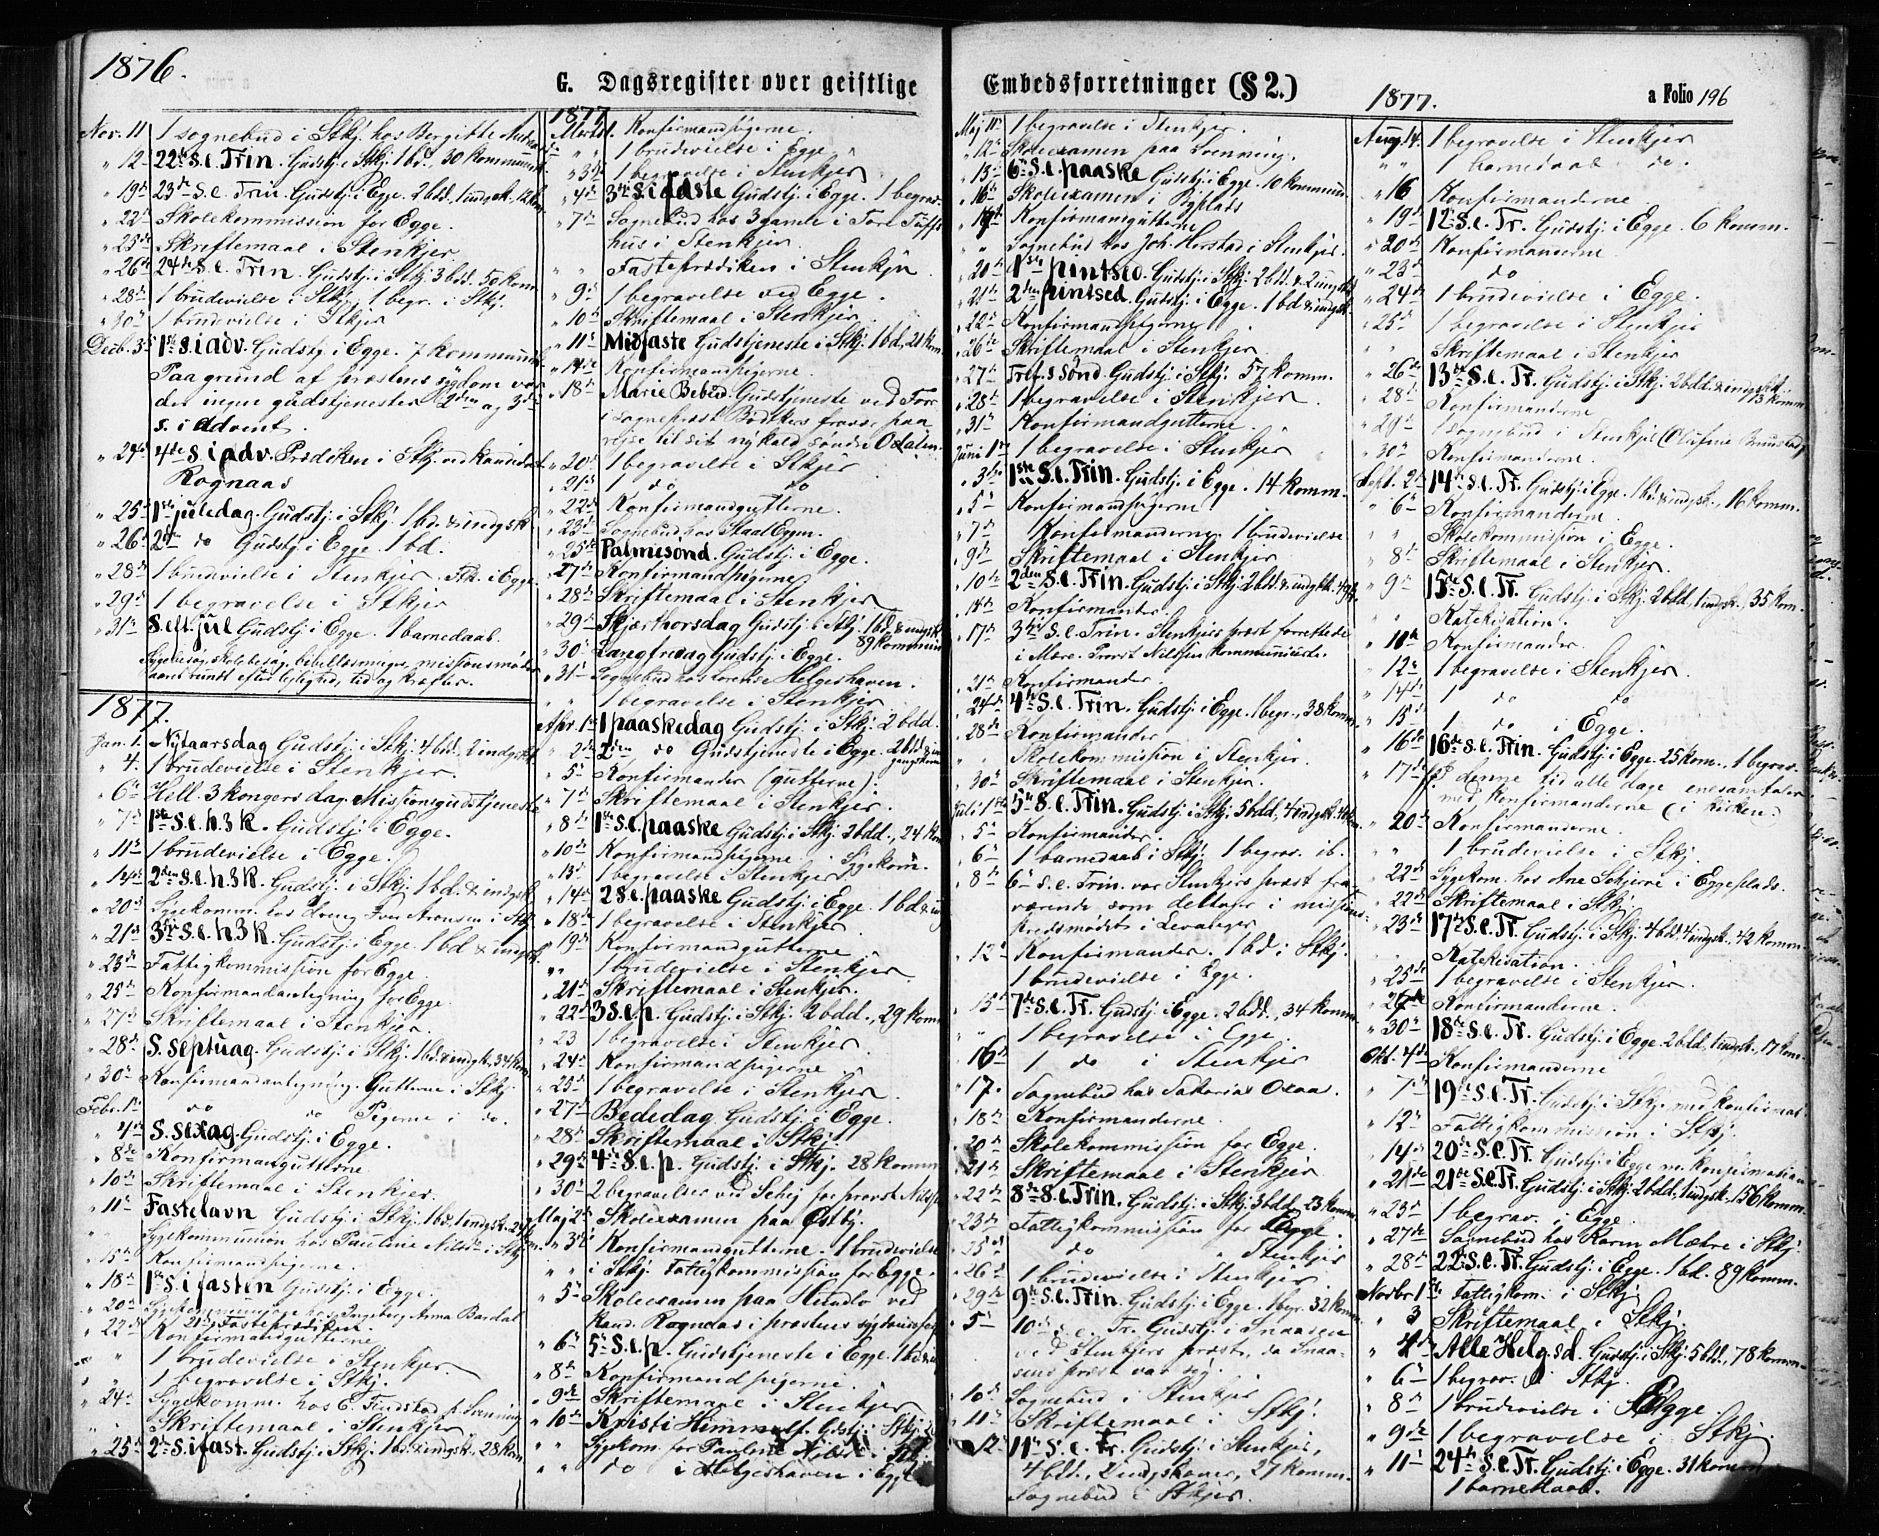 1876.
G. Dagsregister over geistlige
Nov. 11 1 sognebud i Stkj. hos Bergitte
" 12te 22de S.e. Trin. Gudstj. i Stkj. 1 bd. 30 kommunik.
" 19de 23de S.e. Trin. Gudstj. i Egge. 2 bd., 1 indgsk., 12 kom.
" 22de Skolekommission for Egge.
" 25de Skriftemaal i Stenkjer.
" 26de 24de S.e. Trin. Gudstj. i Stkj. 3 bdd. 50 kom.
" 28de 1 brudevielse i Stkj., 1 begr. i Stkj.
" 30te 1 brudevielse i Stkjer
Decb. 3die 1ste S. i adv. Gudstj. i Egge. 7 kommunik.
Paa grund af præstens sygdom var
der ingen gudstjenester 2den og 3die
s. i Advent.
" 24de 4de S i adv. Prædiken i Stkj. ved kandidat
Rognaas
" 25de 1ste juledag. Gudstj. i Stkj. 1 bd. & indgsk.
" 26de 2den do Gudstj. i Egge. 1 bd.
" 28de 1 brudevielse i Stenkjer. Ftk. i Egge.
" 29de 1 begravelse i Stkjer
" 31te S. eft. jul Gudstj. i Egge. 1 barnedaab.
Sygebesøg, skolebesøg, bibellæsninger, missionsmøder
samt rundt efter leilighed, tid og kræfter.
1877.
Jan. 1. Nytaarsdag Gudstj. i Stkj. 4 bd. 2 indgsk.
" 4. 1 brudevielse i Stenkjer.
" 6te Hell. 3 kongers dag. Missionsgudstjeneste
" 7de 1ste S.e. h. 3 K. Gudstj. i Egge.
" 11te 1 brudevielse i Egge.
" 14de 2den S.e. h. 3 K. Gudstj. i Stkj. 1 bd. & indgsk.
" 20de Sygekomm. hos Fru Aronsen i Stkj.
" 21de 3die S.e. h. 3 K. Gudstj. i Egge. 1 bd & indgsk.
" 23de Fattigkommission for Egge.
" 25de Konfirmandantegning for Egge.
" 27de Skriftemaal i Stenkjer.
" 28de S. Septuag. Gudstj. i Stkj. 1 bd. & indgsk. 34 kom.
" 30te Konfirmandantegning. Gutterne i Stkj.
Febr. 1ste do do Pigerne i do.
" 4de S. Sexag. Gudstj. i Egge.
" 8de Konfirmangutterne
" 10de Skriftemaal i Stenkjer.
" 11te Fastelavn Gudstj. i Stkj. 1 bd. 1 indgsk.
Sygekommunion hos Pauline Nilsen i Stkj.
" 15de Konfirmandpigerne.
" 18de 1ste S. i fasten Gudstj. i Egge.
" 20de hos Ingeborg Anna Bardal
21de Fasteprædiken
" 22de Konfirmandgutterne
" 1 brudevielse i Stenkjer
" 1 begravelse i Stkj.
" 24de Sygekomm. hos E. Findstad p. Sanning
" Skriftemaal i Stenkjer
" 25de 2den S. i fast. Gudstj. i Stkj. 1 bd. & indgsk. 28 kom
1877
Marts 1. Konfirmandpigerne.
" 1 brudevielse i Egge
" 3die 1 begravelse i Stenkjer
" 4de 3die S i faste Gudstj. i Egge. 1 begrav.
" 7de Sognebud hos 3 gamle i Tore Tuffs
hus i Stenkjer.
" Fasteprædiken i Stenkjer
" 9de 1 begravelse ved Egge.
" 10de Skriftemaal i Stenkjer
" 11te Midfaste Gudstjeneste i Stkj. 1 bd, 21 kom.
" 14de Konfirmandpigerne.
" 18de Marie Bebud. Gudstjeneste ved Tor.
i sognepræst Bødtkers fravær paa
reise til sit ny kald søndre Odalen.
" 20de 1 begravelse i Stkjer
" 21de 1 do do
" 22de Konfirmandgutterne.
" 23de Sognebud hos Staal Ovrum.
" 25de Palmesønd. Gudstj. i Egge.
" 27de Konfirmandpigerne
" 28de Skriftemaal i Stenkjer
" 29de Skjærthorsdag Gudstj. i Stkj. 1 bd. & indgsk.
89 kommun
" 30te Langfredag Gudstj. i Egge.
" 31te Sognebud hos Lorense Helgeshaven.
" 1 begravelse i Stenkjer
Apr. 1ste 1 paaskedag Gudstj. i Stkj. 2 bdd.
" 2den 2den do Gudstjeneste i Egge 2 bdd & in
gangskone
" 5te Konfirmander (gutterne).
" 7de Skriftemaal i Stenkjer.
" 8de 1ste S.e. paaske Gudstj. i Stkj. 3 bdd., 24 kom
" 10de Konfirmandpigerne. 1 Sygekom.
" 13de 1 begravelse i Stenkjer
" 14de 2 S.e. paaske Gudstj. i Egge. 1 bd & ing
" 18de 1 begravelse i Stenkjer
" 19de Konfirmandgutterne
" 1 brudevielse i Stenkjer
" 21de Skriftemaal i Stenkjer.
" 22de 3 S.e.p. Gudstj. i Stkj. 2 bdd., 29 kom.
" 23 1 begravelse i Stenkjer
" 24de Konfirmandpigerne
" 25de 1 begravelse i Stenkjer.
" 27de Bededag Gudstj. i Egge.
" 28de Skriftemaal i Stkj.
" 29de 4de S.e.p. Gudstj. i Stkj. 28 komm
" 30te 2 begravelser ved for provst Nils
Maj 2den Skoleexamen paa Østby.
" 3die Konfirmandgutterne. 1 brudevielse
i Stkj. Fattigkommission for Egge.
" 5te Skoleexamen paa ved
Kand. Rognaas i præstens sygdomsforf
" 6te 5te S.e.p. Gudstjeneste i Egge. 1 bd &
" 8de Konfirmandpigerne.
" 9de Skriftemaal i Stenkjer
" 10de Kristi Himmelf. Gdstj. i Stkj.
" Sygekom. for Pauline Nilsen i Stkj
" do i Helgeshaven i Egge
Embedsforretninger (§ 2.)
1877. a Folio 196
Maj 11te 1 begravelse i Stenkjer.
" 12te Skoleexamen paa
" 13de 6te S.e. paaske Gudstj. i Egge. 10 kommun.
" 16de Skoleexamen i
" 17de Konfirmangutterne
" Sognebud hos Joh. Horstad i Stenkjer.
" 20de 1ste pintsed. Gudstj. i Stkj. 2 bdd. & 2 ingsk.
" 21de 2den pintsed. Gudstj. i Egge. 1 bd & ingsk.
" 22de Konfirmandpigerne
" 26de Skriftemaal i Stenkjer
" 27de Tref. s Sønd Gudstj. i Stkj. 57 komm.
" 28de 1 begravelse i Stenkjer.
" 31te Konfirmandgutterne.
Juni 1ste 1 begravelse i Stenkjer
" 3die 1ste S.e. Trin. Gudstj. i Egge. 14 komm.
" 5te Konfirmandpigerne
" 7de Konfirmanderne 1 brudevielse
" 9de Skriftemaal i Stenkjer
" 10de 2den S.e. Trin. Gudstj. i Stkj. 2 bdd. & ingsk.
" 14de Konfirmander.
" 17de 3die S.e. Trin. Stenkjers præst forrettede
i Mære. Provst Nilssen kommunicerede.
" 21de Konfirmander
" 24de 4de S.e. Trin. Gudstj. i Egge. 1 begr., 38 komm.
" 28de Konfirmander
" Skolekommission i Stenkjer.
" 30te Skriftemaal i Stenkjer.
Juli 1ste 5te S.e. Trin. Gudstj. i Stkj. 5 bdd, 4 indgsk.
" 5te Konfirmander.
" 6te 1 barnedaab i Stkj. 1 begrav. ib.
" 8de 6te S.e. Trin. var Stenkjers præst fra-
værende som deltager i missions-
kredsmødet i Levanger
" 12te Konfirmander. 1 bd. i Stkj.
1 brudevielse i Egge.
" 15de 7de S.e. Tr. Gudstj. i Egge. 2 bdd., 34 komm.
" 1 begravelse i Egge
" 16de 1 do i Stenkjer
" 17. Sognebud hos Sakarias Oxaa.
" 18de Konfirmanderne.
" 20de Skolekommission for Egge
" 21de Skriftemaal i Stenkjer
" 22de 8de S.e. Trin. Gudstj. i Stkj. 3 bdd. 23 komm.
" 23de Fattigkommission for Egge.
" 25de do " Stenkjer
" 26de 1 brudevielse i Stenkjer.
" 29de 9de S.e. Trin. Gudstj. i Egge. 1 begr. 32 komm.
" 5te 10de s.e. Tr. Gudstj. i Snaasen
ved Stenkjers præst, da Snaa-
sens præst var syg.
" 10de Sognebud i Stenkjer
" 11te Skriftemaal i Stkj
" 12te 11te S.e. Tr. Gudstj. i Stenkjer,
4 bdd., 2 indgskoner, 27 komm.
Sognebud i Stkjer.
Aug. 14. 1 begravelse i Stenkjer
" 1 barnedaab do.
" 16 Konfirmanderne.
" 19de 12te S.e. Tr. Gudstj. i Egge. 6 komm.
" 20de Konfirmanderne.
" 23de do
" 24de 1 brudevielse i Egge.
" 25de 1 begravelse i Stenkjer
" Skriftemaal i Stenkjer
" 26de 13de S.e. Tr. Gudstj. i Stkj. 2 bdd. & indgsk.
" 28de Konfirmanderne
" 29de 1 sognebud i Stenkjer (Olufine
" 30te Konfirmanderne.
Sept. 2den 14de S.e. Tr. Gudstj. i Egge. 1 bd. & indgsk., 16 komm.
" 6te Konfirmanderne.
" Skolekommission i Egge.
" 8de Skriftemaal i Stenkjer.
" 9de 15de S.e. Tr. Gudstj. i Stkj. 2 bdd, 1 indgsk., 35 kom.
Katekisation.
" 10de Konfirmander.
" 12te 1 begravelse i Stenkjer.
" 14de 1 do do
" 15de 1 do i Egge.
" 16de 16de S.e. Trin. Gudstj. i Egge 25 kom., 1 begrav.
" 17de I denne tid alle dage
med konfirmanderne (i kirken.)
" 20de Konfirmanderne.
" 1 brudevielse i Stkj.
" 22de Sygekom. hos Ane i Eggeplads.
" 22de Skriftemaal i Stkj.
" 23de 17de S.e. Tr. Gudstj. i Stkj. 4 bdd, 4 indgsk., 42 komm.
Katekisation.
" 25de 1 begravelse i Stenkjer.
" 26de Konfirmanderne.
" 30te 18de S.e. Tr. Gudstj. i Egge. 2 bdd, 1 indgsk., 17 kom.
Okt. 4de Konfirmanderne
" 7de 19de S.e. Tr. Gudstj. i Stkj. med konfirmat.
" 12te Fattigkommission i Stkj.
" 14de 20de S.e. Tr. Gudstj. i Egge m. konfirmation
" 21de 21de S.e. Tr. Gudstj. i Stkj. 2 bdd, 1 indgsk., 156 komm.
" 23de 1 begrav. i Egge.
" 27de Sognebud hos Karen Mæhre i Stkj.
" 28de 22de S.e. Tr. Gudstj. i Egge. 1 bd. 89 komm.
Novbr. 1ste Fattigkom. i Stkj
" 3 Skriftemaal i Stkj.
" 4de Alle Helg. sd. Gudstj. i Stkj. 5 bdd., 78 komm.
" 6te 1 begrav. i Stkj.
" 8de 1 brudevielse i Egge.
" 9de 1 begravelse i Stkj
" 11te 24de S.e. Tr. Gudstj. i Egge. 31 komm
1 barnedaab.